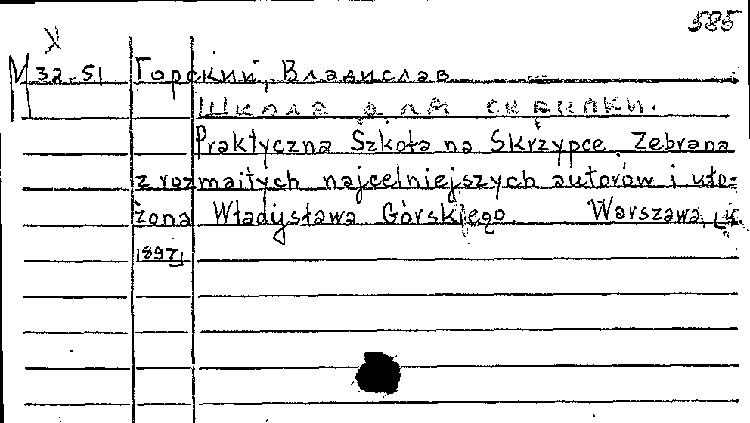 585
X
М 32-51 Горский, Владислав
Школа для скрипки.
Praktyczna Szkoła na Skrzypce. Zebrana
z rozmaitych najcelniejszych autorów i uło-
żona Władysława Górskiego. Warszawa,
1897